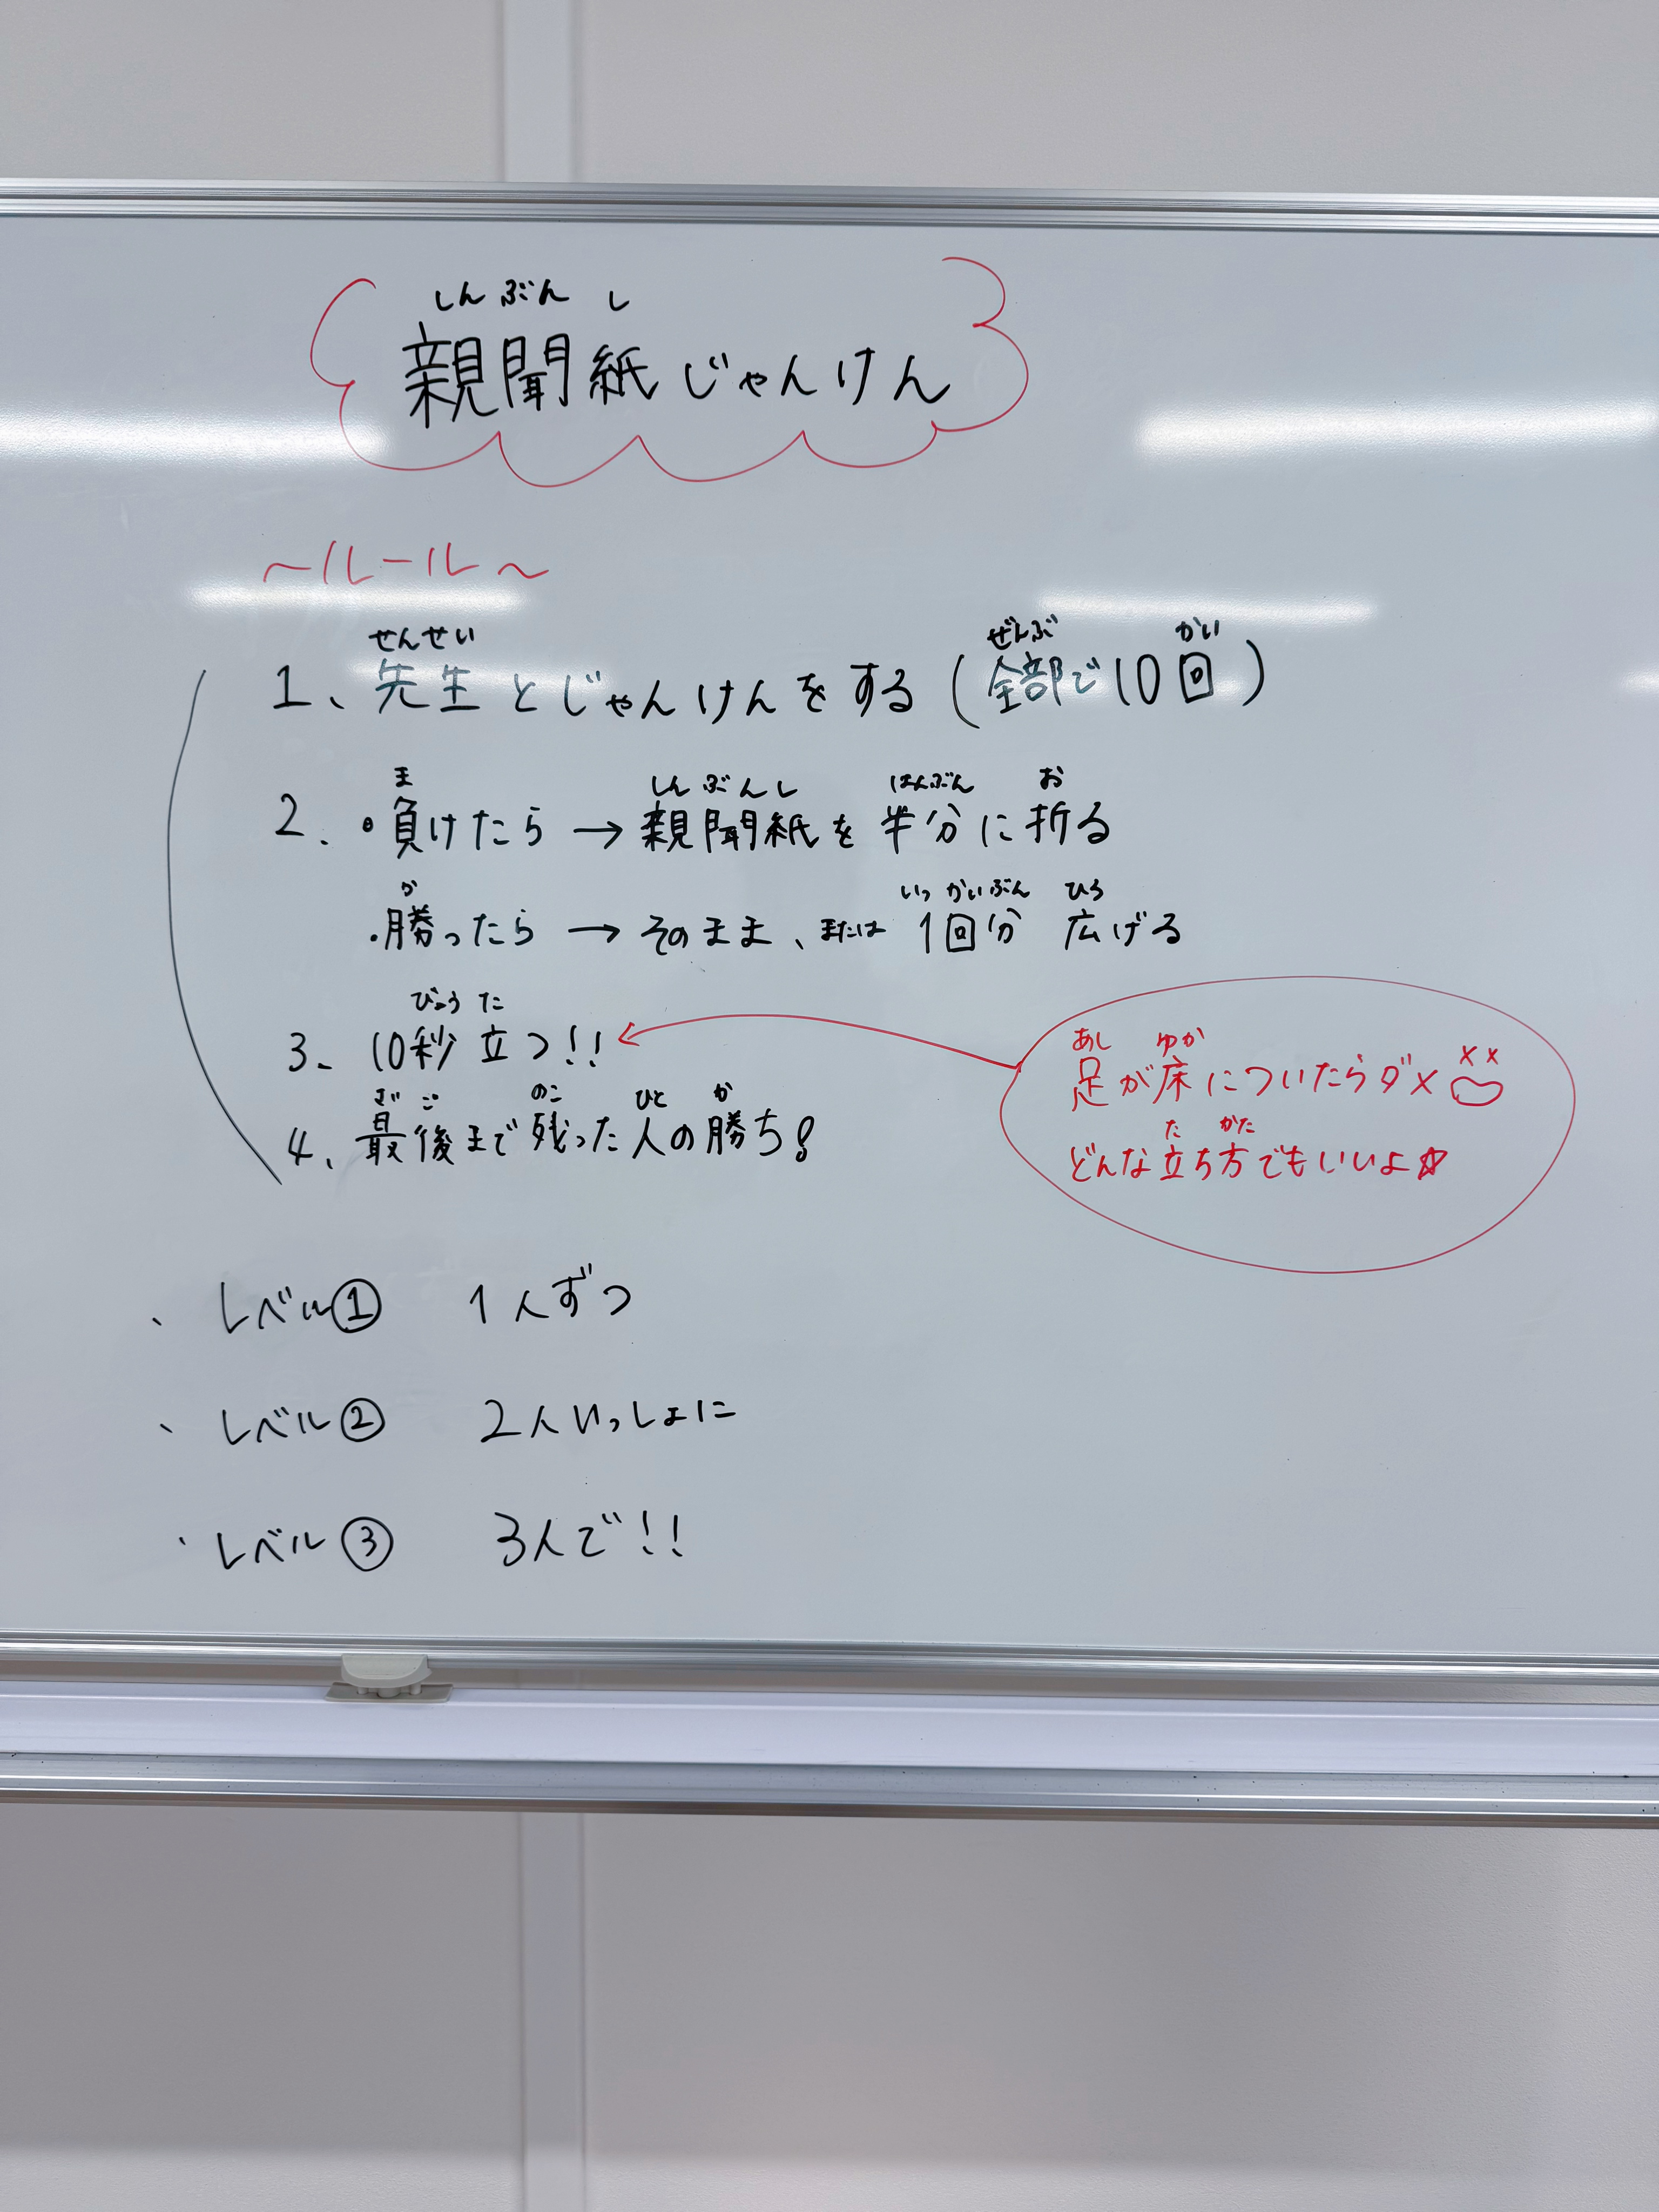 しんぶんし
親聞紙じゃんけん
～ルール～
せんせい ぜんぶ かい
1、先生とじゃんけんをする(全部で10回)
ま しんぶんし はんぶん お
2、・負けたら→親聞紙を半分に折る
か いっかいぶん ひろ
・勝ったら→そのまま、または1回分 広げる
びょう た
3、10秒立つ!!
さいご のこ ひと か
4、最後まで残った人の勝ち!
あし ゆか
足が床についたらダメ
た かた
どんな立ち方でもいいよ☆
、レベル① 1人ずつ
、レベル② 2人いっしょに
、レベル③ 3人で!!